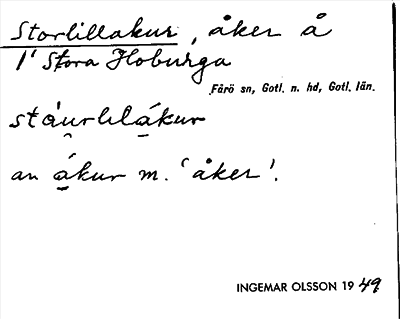 Storlillakur, åker å
1' Stora Hoburga
Fårö sn, Gotl. n. hd, Gotl. län.
stáurlilákur
an ákur m. 'åker'.
INGEMAR OLSSON 1949